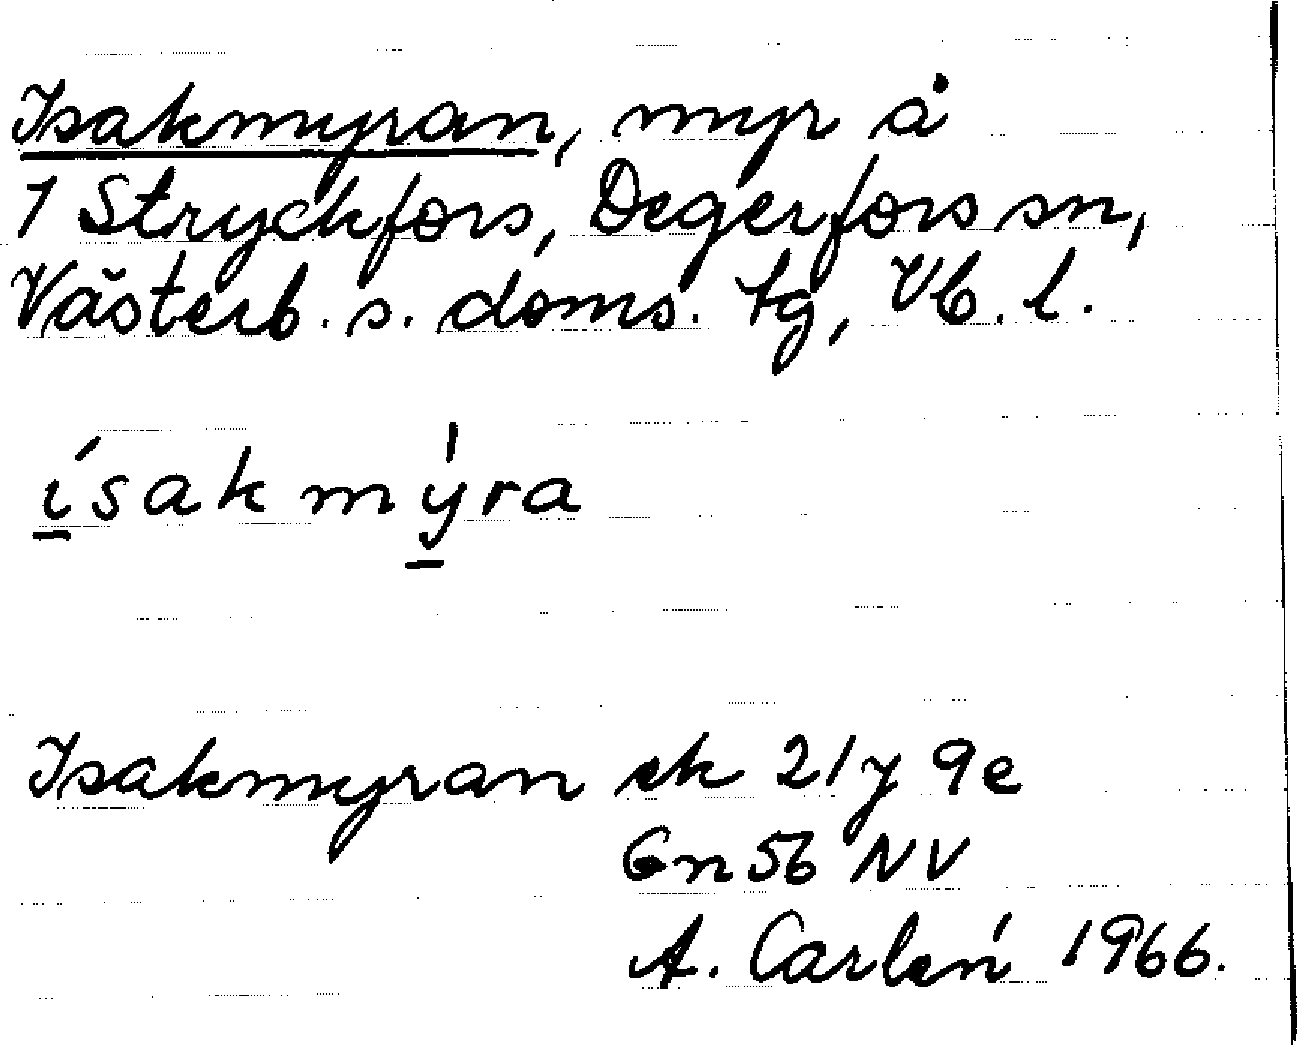 Isakmyran, myr å
1 Stryckfors, Degerfors sn,
Västerb. s. doms. tg, Vb. l.
ísakmýra
Isakmyran ek 21 y 9e
Gn 56 NV
A. Carlén 1966.